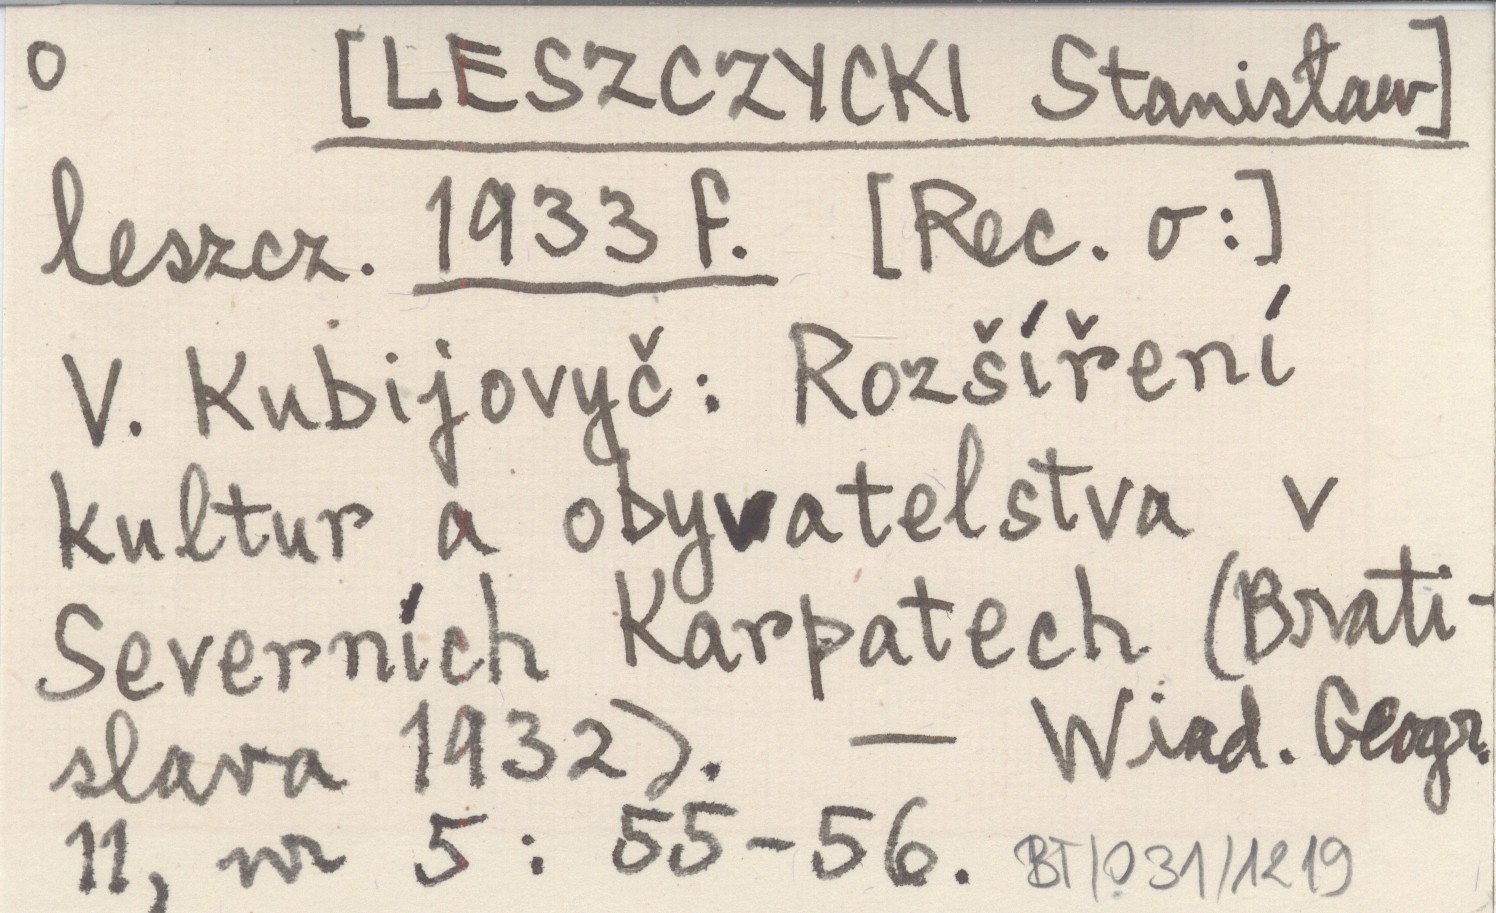 o [LESZCZYCKI Stanisław]
leszcz. 1933 f. [Rec. o:]
V. Kubijovyč: Rozšíření
kultur a obyvatelstva v
Severních Karpatech (Brati-
slava 1932). — Wiad. Geogr.
11, nr 5: 55-56. BT/031/1219